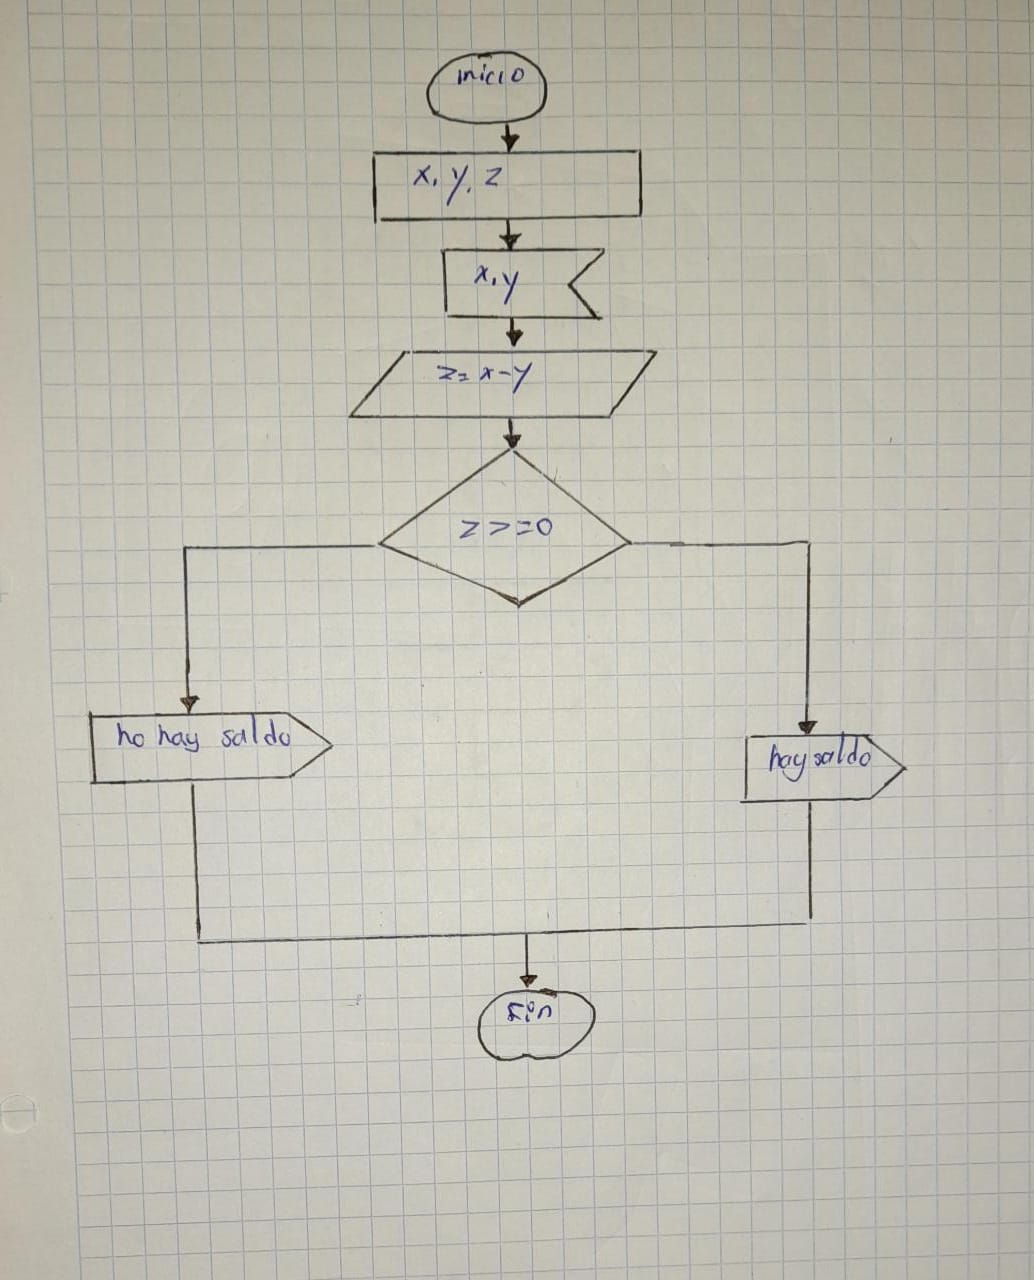 inicio
x, y, z
x, y
z = x - y
z >= 0
no hay saldo
hay saldo
fin